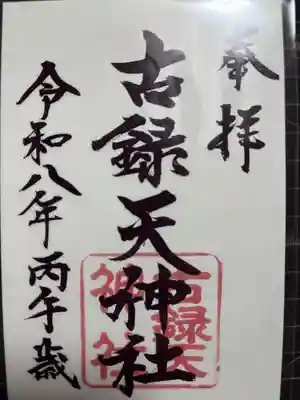 奉拝
古録天神社
令和八年丙午歳
古録天
神社